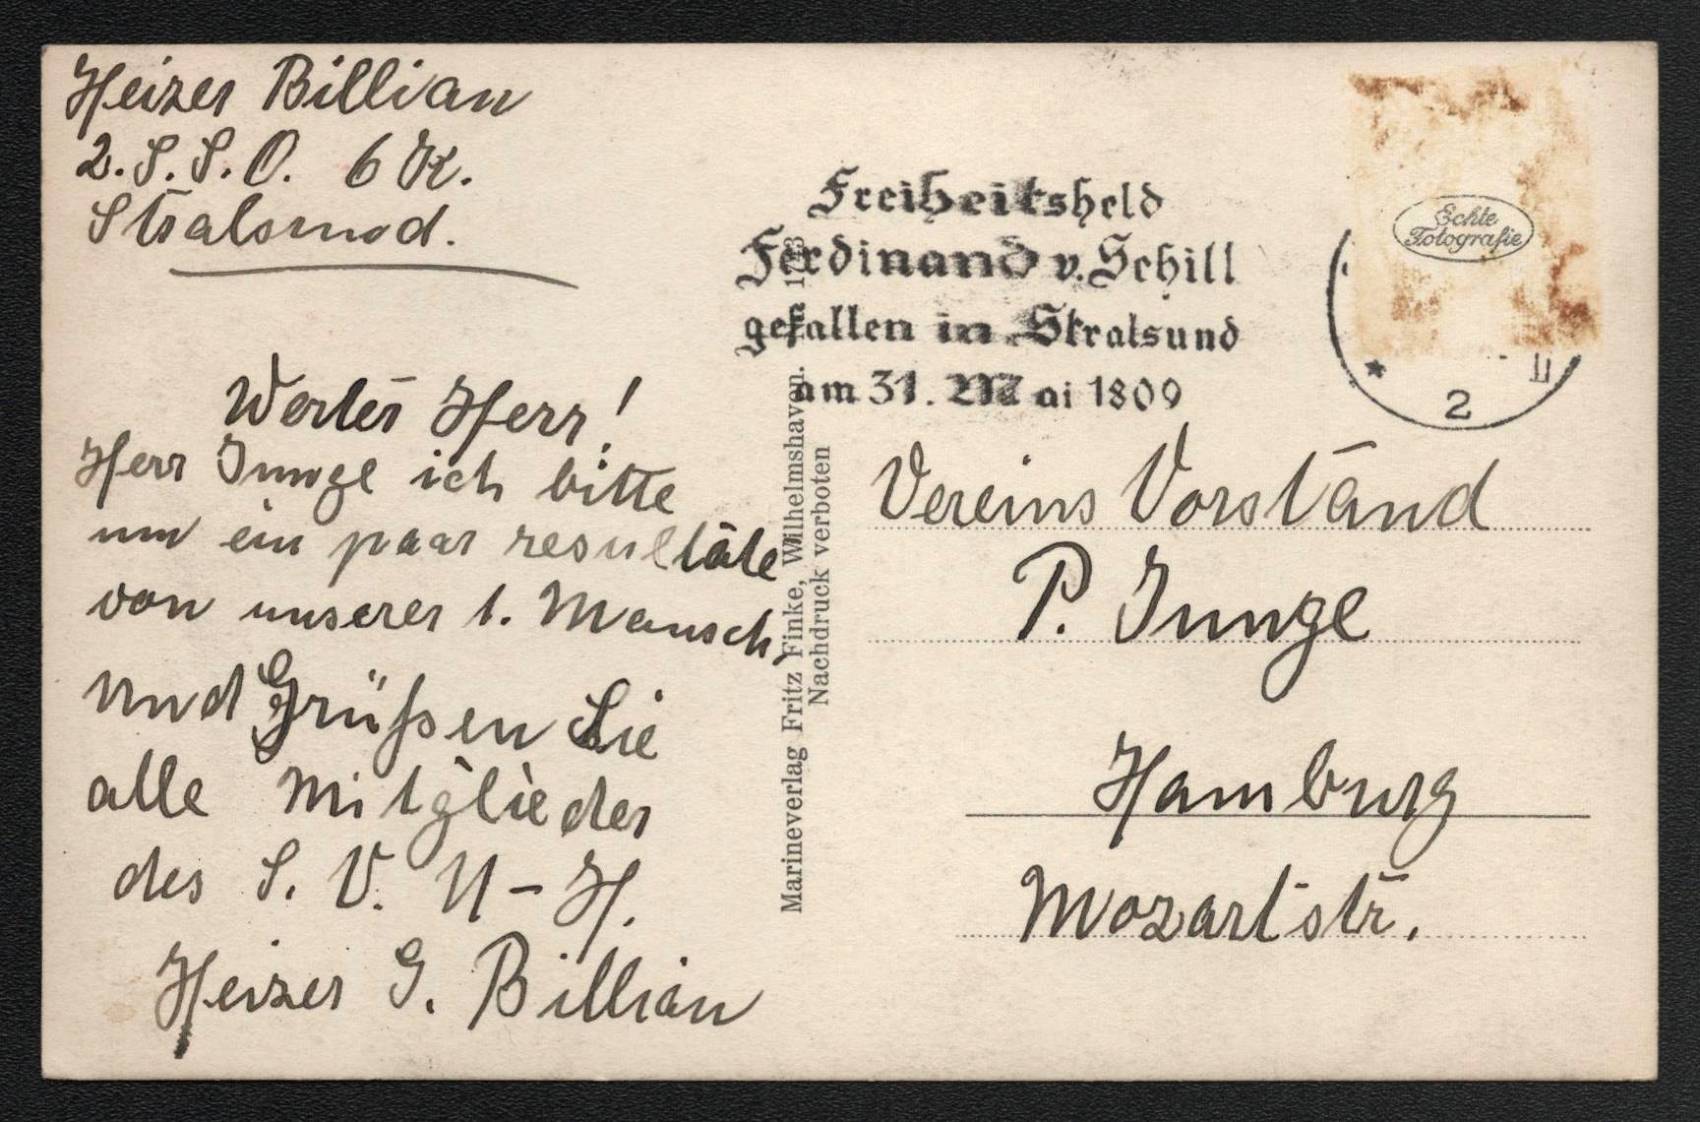 Heizer Billian
2. S. S. O. 6 K.
Stralsund.
Werter Herr!
Herr Junge ich bitte
um ein paar resultäte
von unserer 1. Mansch.
und Grüßen Sie
alle Mitglieder
des S. V. U-H.
Heizer G. Billian
Marineverlag Fritz Finke, Wilhelmshaven.
Nachdruck verboten
Freiheitsheld
Ferdinand v. Schill
gefallen in Stralsund
am 31. Mai 1809
Echte
Fotografie
* 2
Vereins Vorstand
P. Junge
Hamburg
Mozartstr.